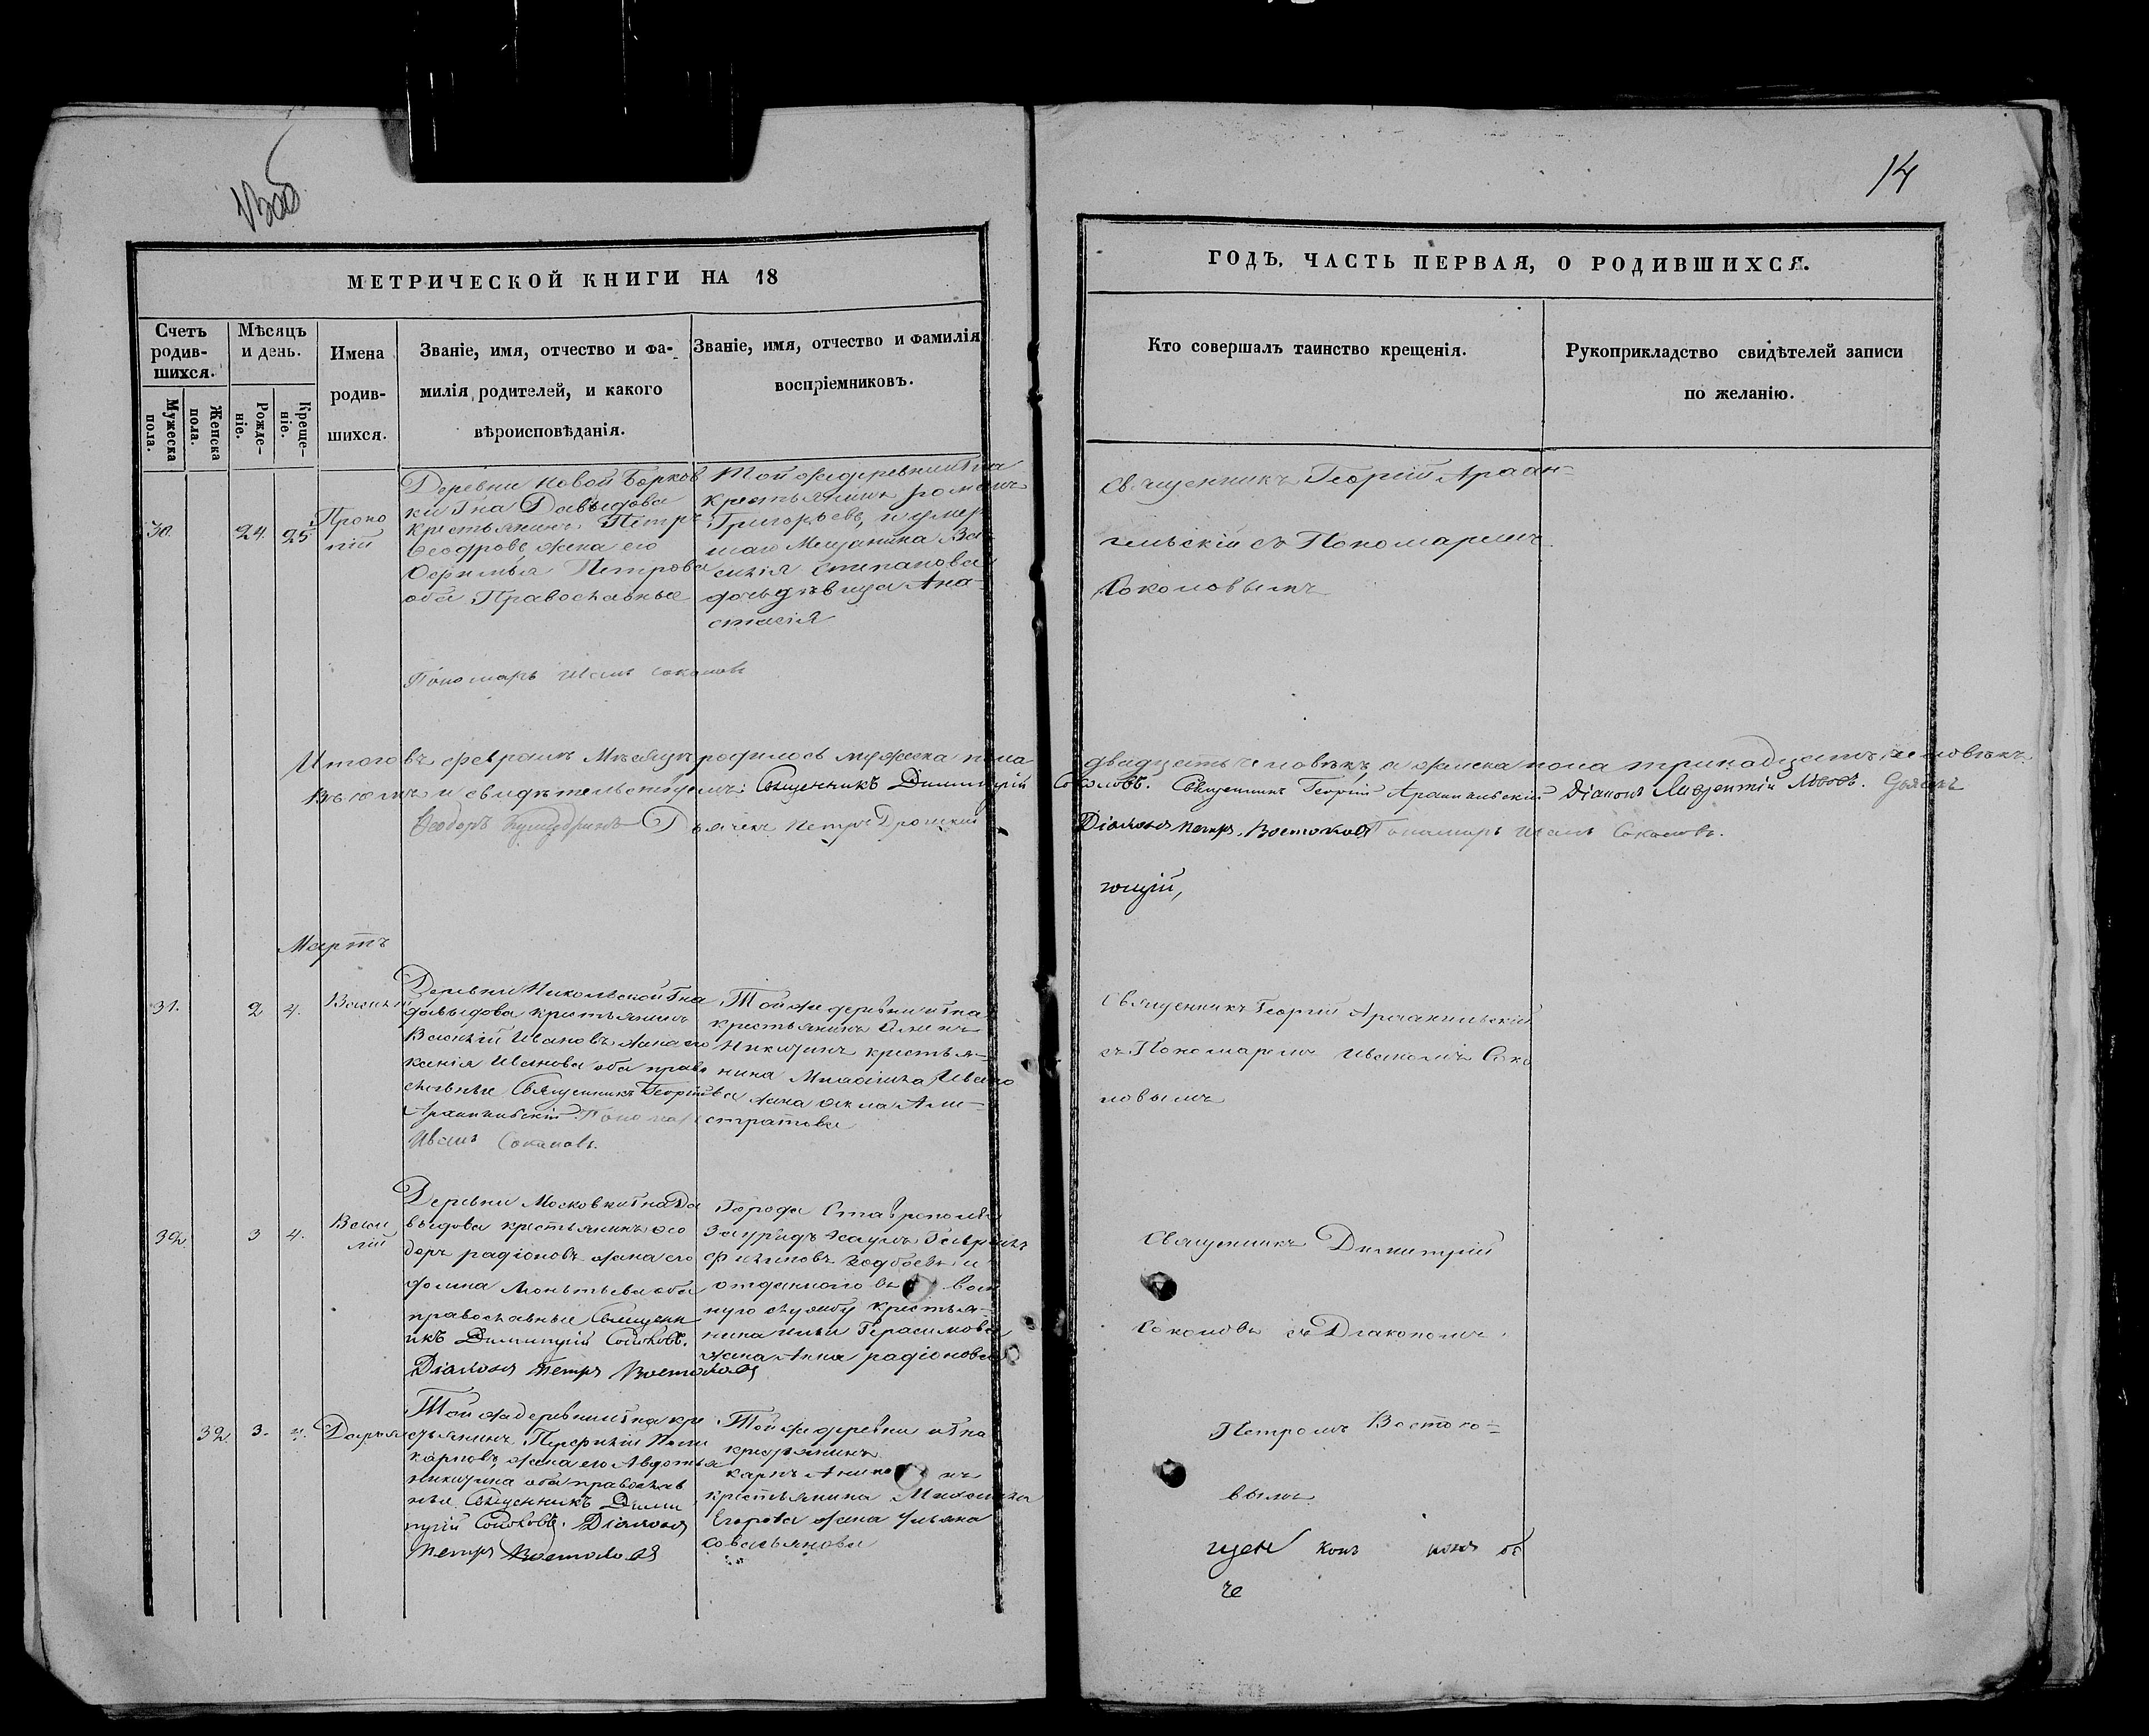 13об
14
МЕТРИЧЕСКОЙ КНИГИ НА 18
ГОДЪ, ЧАСТЬ ПЕРВАЯ, О РОДИВШИХСЯ.
Счетъ родив-шихся.
Мужеска пола.
Женска пола.
Мѣсяцъ и день.
Рожде-ніе.
Креще-ніе.
Имена родив-шихся.
Званіе, имя, отчество и фа-
милія родителей, и какого
вѣроисповѣданія.
Званіе, имя, отчество и фамилія
воспріемниковъ.
Кто совершалъ таинство крещенія.
Рукоприкладство свидѣтелей записи
по желанію.
30.
24.
25.
Проко
пій
Деревни Новой Борков
ки Гна Давыдова
крестьянинъ Петръ
Ѳеодоровъ, жена его
Петрова
оба Православные
Той же деревни и Гна
крестьянинъ Романъ
Григорьевъ, и умер
шаго Мещанина Ва-
силія Степанова
дочь дѣвица Ана-
стасія
Священникъ Георгій Архан-
гельскій съ Пономаремъ
Соколовымъ
Пономарь Иванъ Соколовъ
Итого въ февралѣ Мѣсяцѣ родилось мужеска пола
двадцать человѣкъ, а женска пола тринадцать человѣкъ.
и свидѣтельствуемъ: Священникъ Димитрій
Соколовъ. Священникъ Георгій Архангельскій Діаконъ Лаврентій Львовъ. Дьячекъ
Ѳеодоръ Дьячекъ Петръ
Діаконъ Петръ Востоковъ Пономарь Иванъ Соколовъ.
ющій,
Мартъ
31.
2
4.
Василій
Деревни Никольской Гна
Давыдова крестьянинъ
Василій Ивановъ, жена его
ксенія Иванова оба право
славные Священникъ Георгій
Архангельскій Пономарь
Иванъ Соколовъ.
Той же деревни и Гна
крестьянинъ
Никитинъ крестья-
нина Михаила Ивано
ва жена
стратова
Священникъ Георгій Архангельскій
съ Пономаремъ Иваномъ Соко
ловымъ
32
3
4.
Васи
лій
Деревни Московки Гна Да
выдова крестьянинъ Ѳео
доръ Радіоновъ жена его
Домна Леонтьева оба
православные Священн
икъ Димитрій Соколовъ.
Діаконъ Петръ Востоковъ
Города Ставрополя
и
отданнаго въ воен
ную службу крестья-
нина Ильи Герасимова
жена Анна Радіонова
Священникъ Димитрій
Соколовъ съ Діакономъ
32.
3.
4.
Дарья
Той же деревни и Гна кре
стьянинъ Перфилій Поли
карповъ, жена его Авдотья
Никитина оба православ
ные Священникъ Дими
трій Соколовъ. Діаконъ
Петръ Востоковъ
Той же деревни и Гна
крестьянинъ
карпъ
крестьянина Михаила
Егорова жена Ульяна
Савельянова
Петромъ Востоко-
вымъ
щен конъ конъ
че